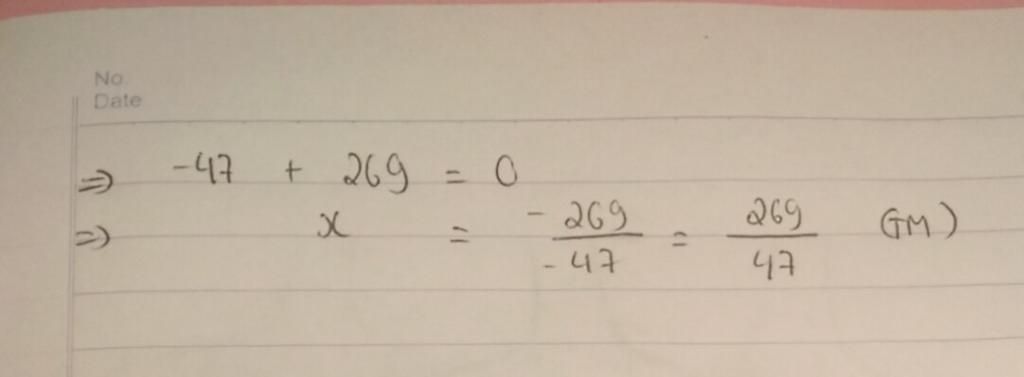 No.
Date
⇒ -47 + 269 = 0
⇒ x = -269/-47 = 269/47 (GM)